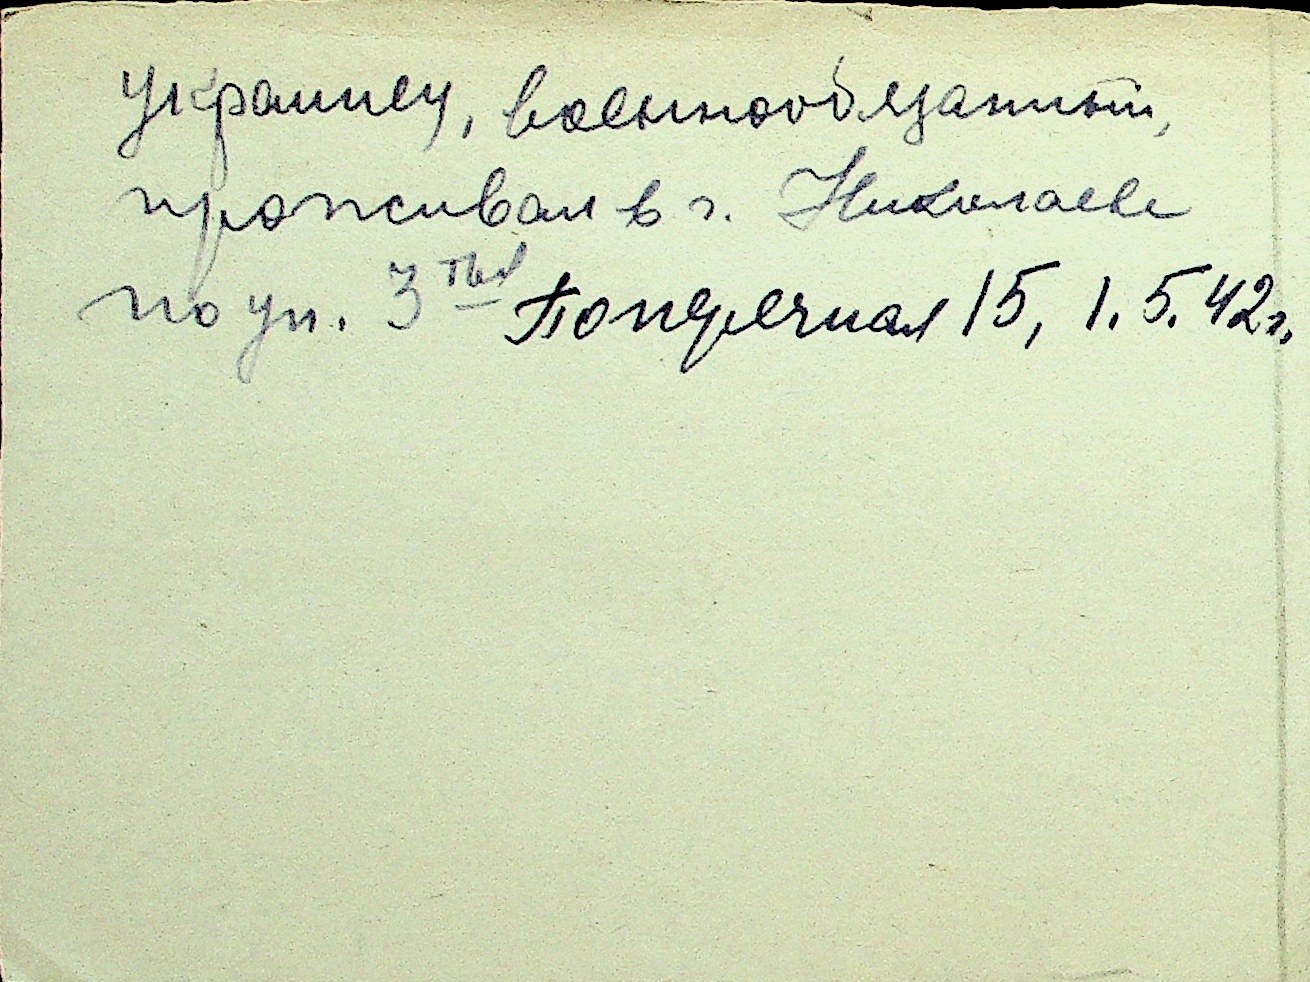 украинец, военнообязанный,
проживал в г. Николаеве
по ул. 3тья Поперечная 15, 1.5.42г.